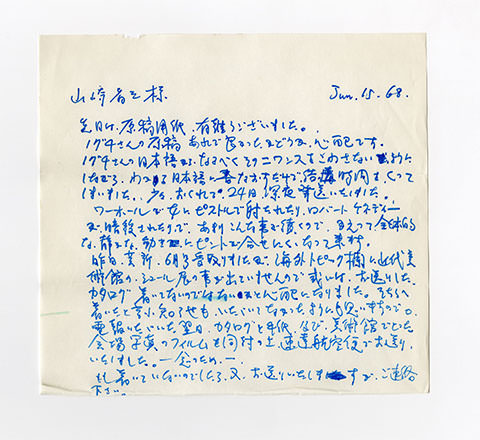 山崎省三様 Jun. 15. 68.
先日は、原稿用紙、有難うございました。
イサムさんの原稿 あれで良かったかどうか、心配です。
イサムさんの日本語が、なるべくそのニワンスをこわさないように
したので、わかる日本語に書きなおすだけで結構時間をくって
しまいました。おくれて、24日深夜発送いたしました。
ワーホールが女にピストルで射たれたり、ロバート ケネディー
が暗殺されたりで、あまりこんな事が続くので、かえって全体的
な、静かな、動きにピントが合せにくくなって来ます。
昨日、芸新、6月号受取りましたが、海外トピック欄に近代美
術館の、シュール展の事が出ていませんので或いは、お送りした
カタログ 着いてないのではないかと心配になりました。そちらへ
着いたと言う知らせも、いただいてなかったように思いますので。
電報いただいた翌日、カタログと手紙、及び、美術館でとった
会場写真のフィルムを同封の上 速達航空便でお送り
いたしました。一念のため一
もし着いていないのでしたら、又、お送りいたしますが、ご連絡
下さい。